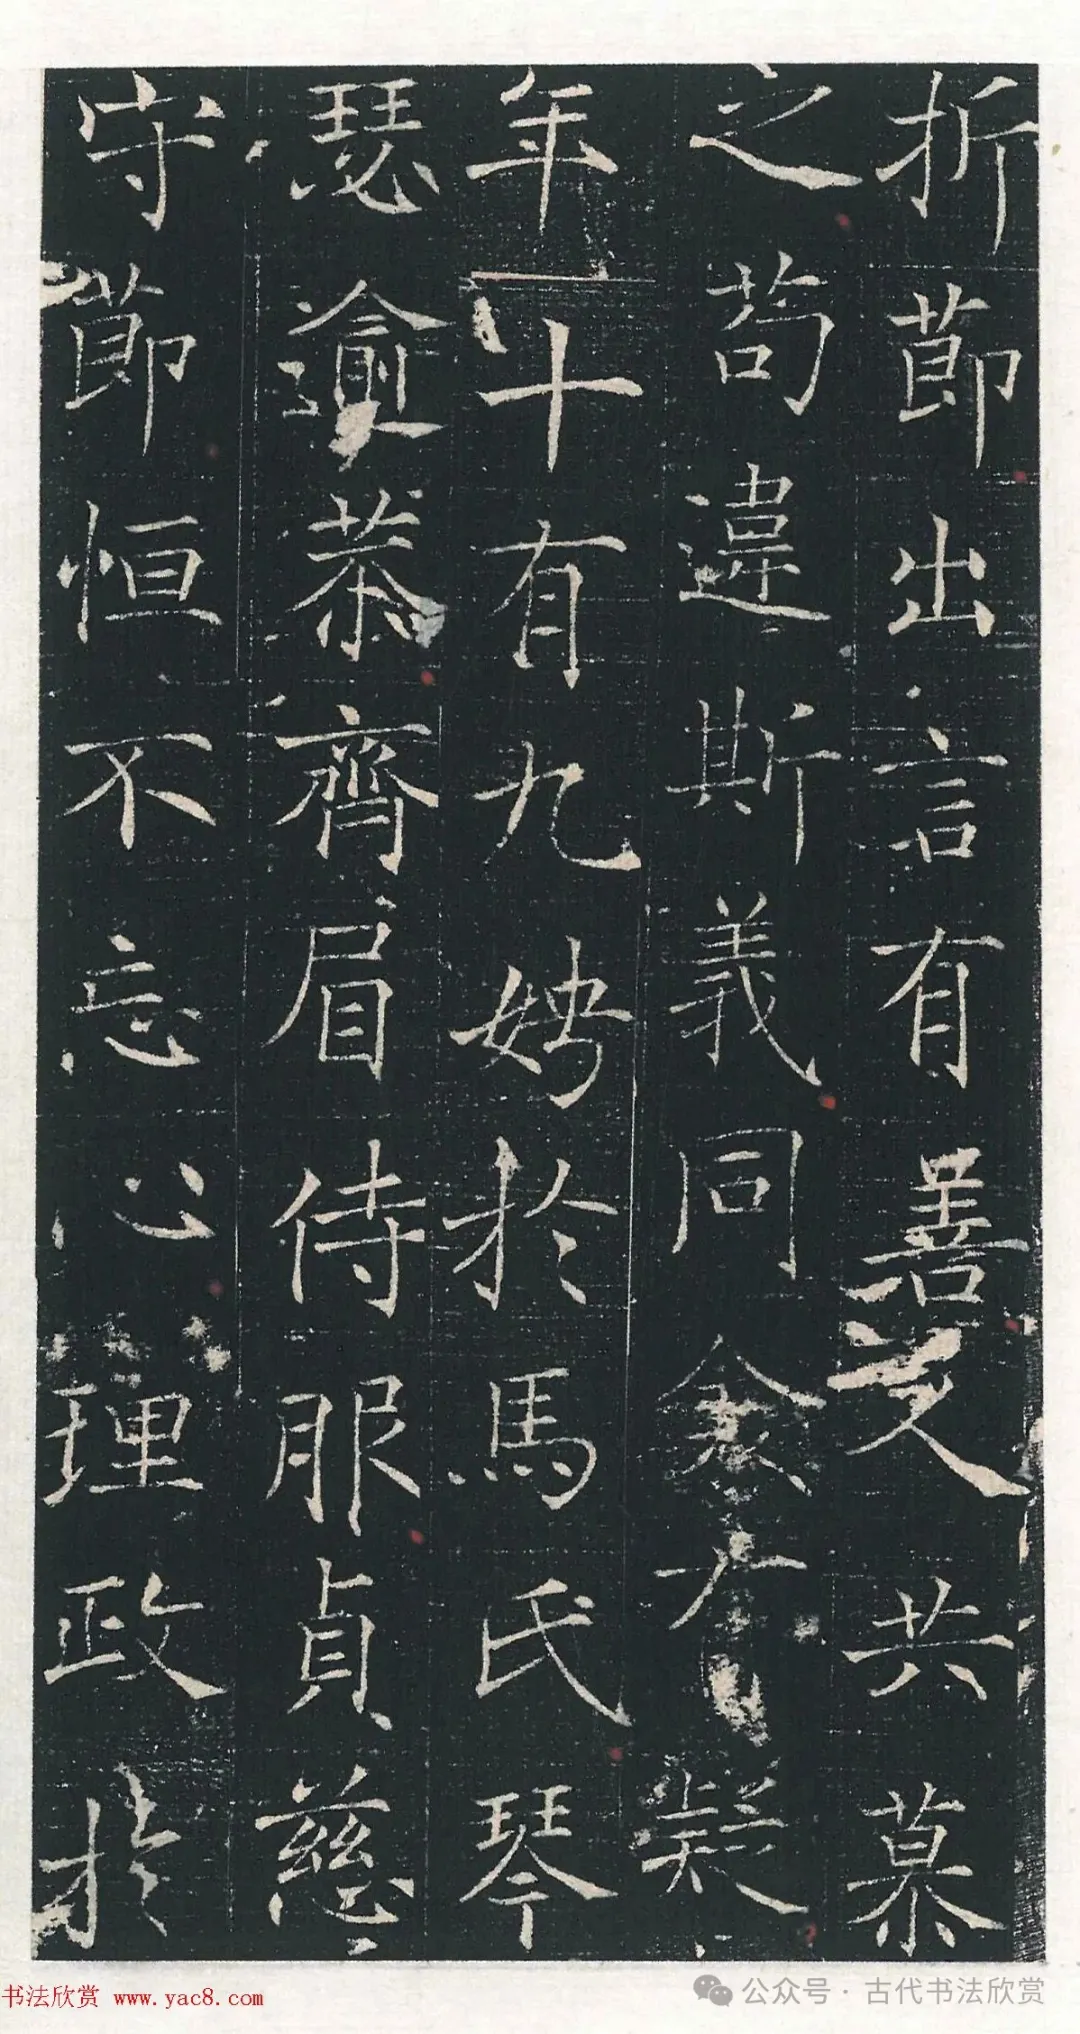 折節出言有善人共慕
之苟違斯義同衾有疑
年十有九娉於馬氏琴
瑟逾恭齊眉侍服貞慈
守節恒不忘心理政於
书法欣赏 www.yac8.com
公众号·古代书法欣赏